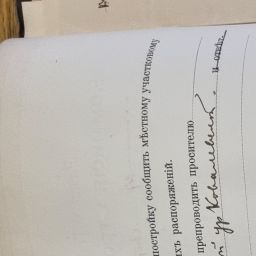 постройку сообщить мѣстному участковому
ихъ распоряженій.
препроводить просителю
ур. Ковалевской